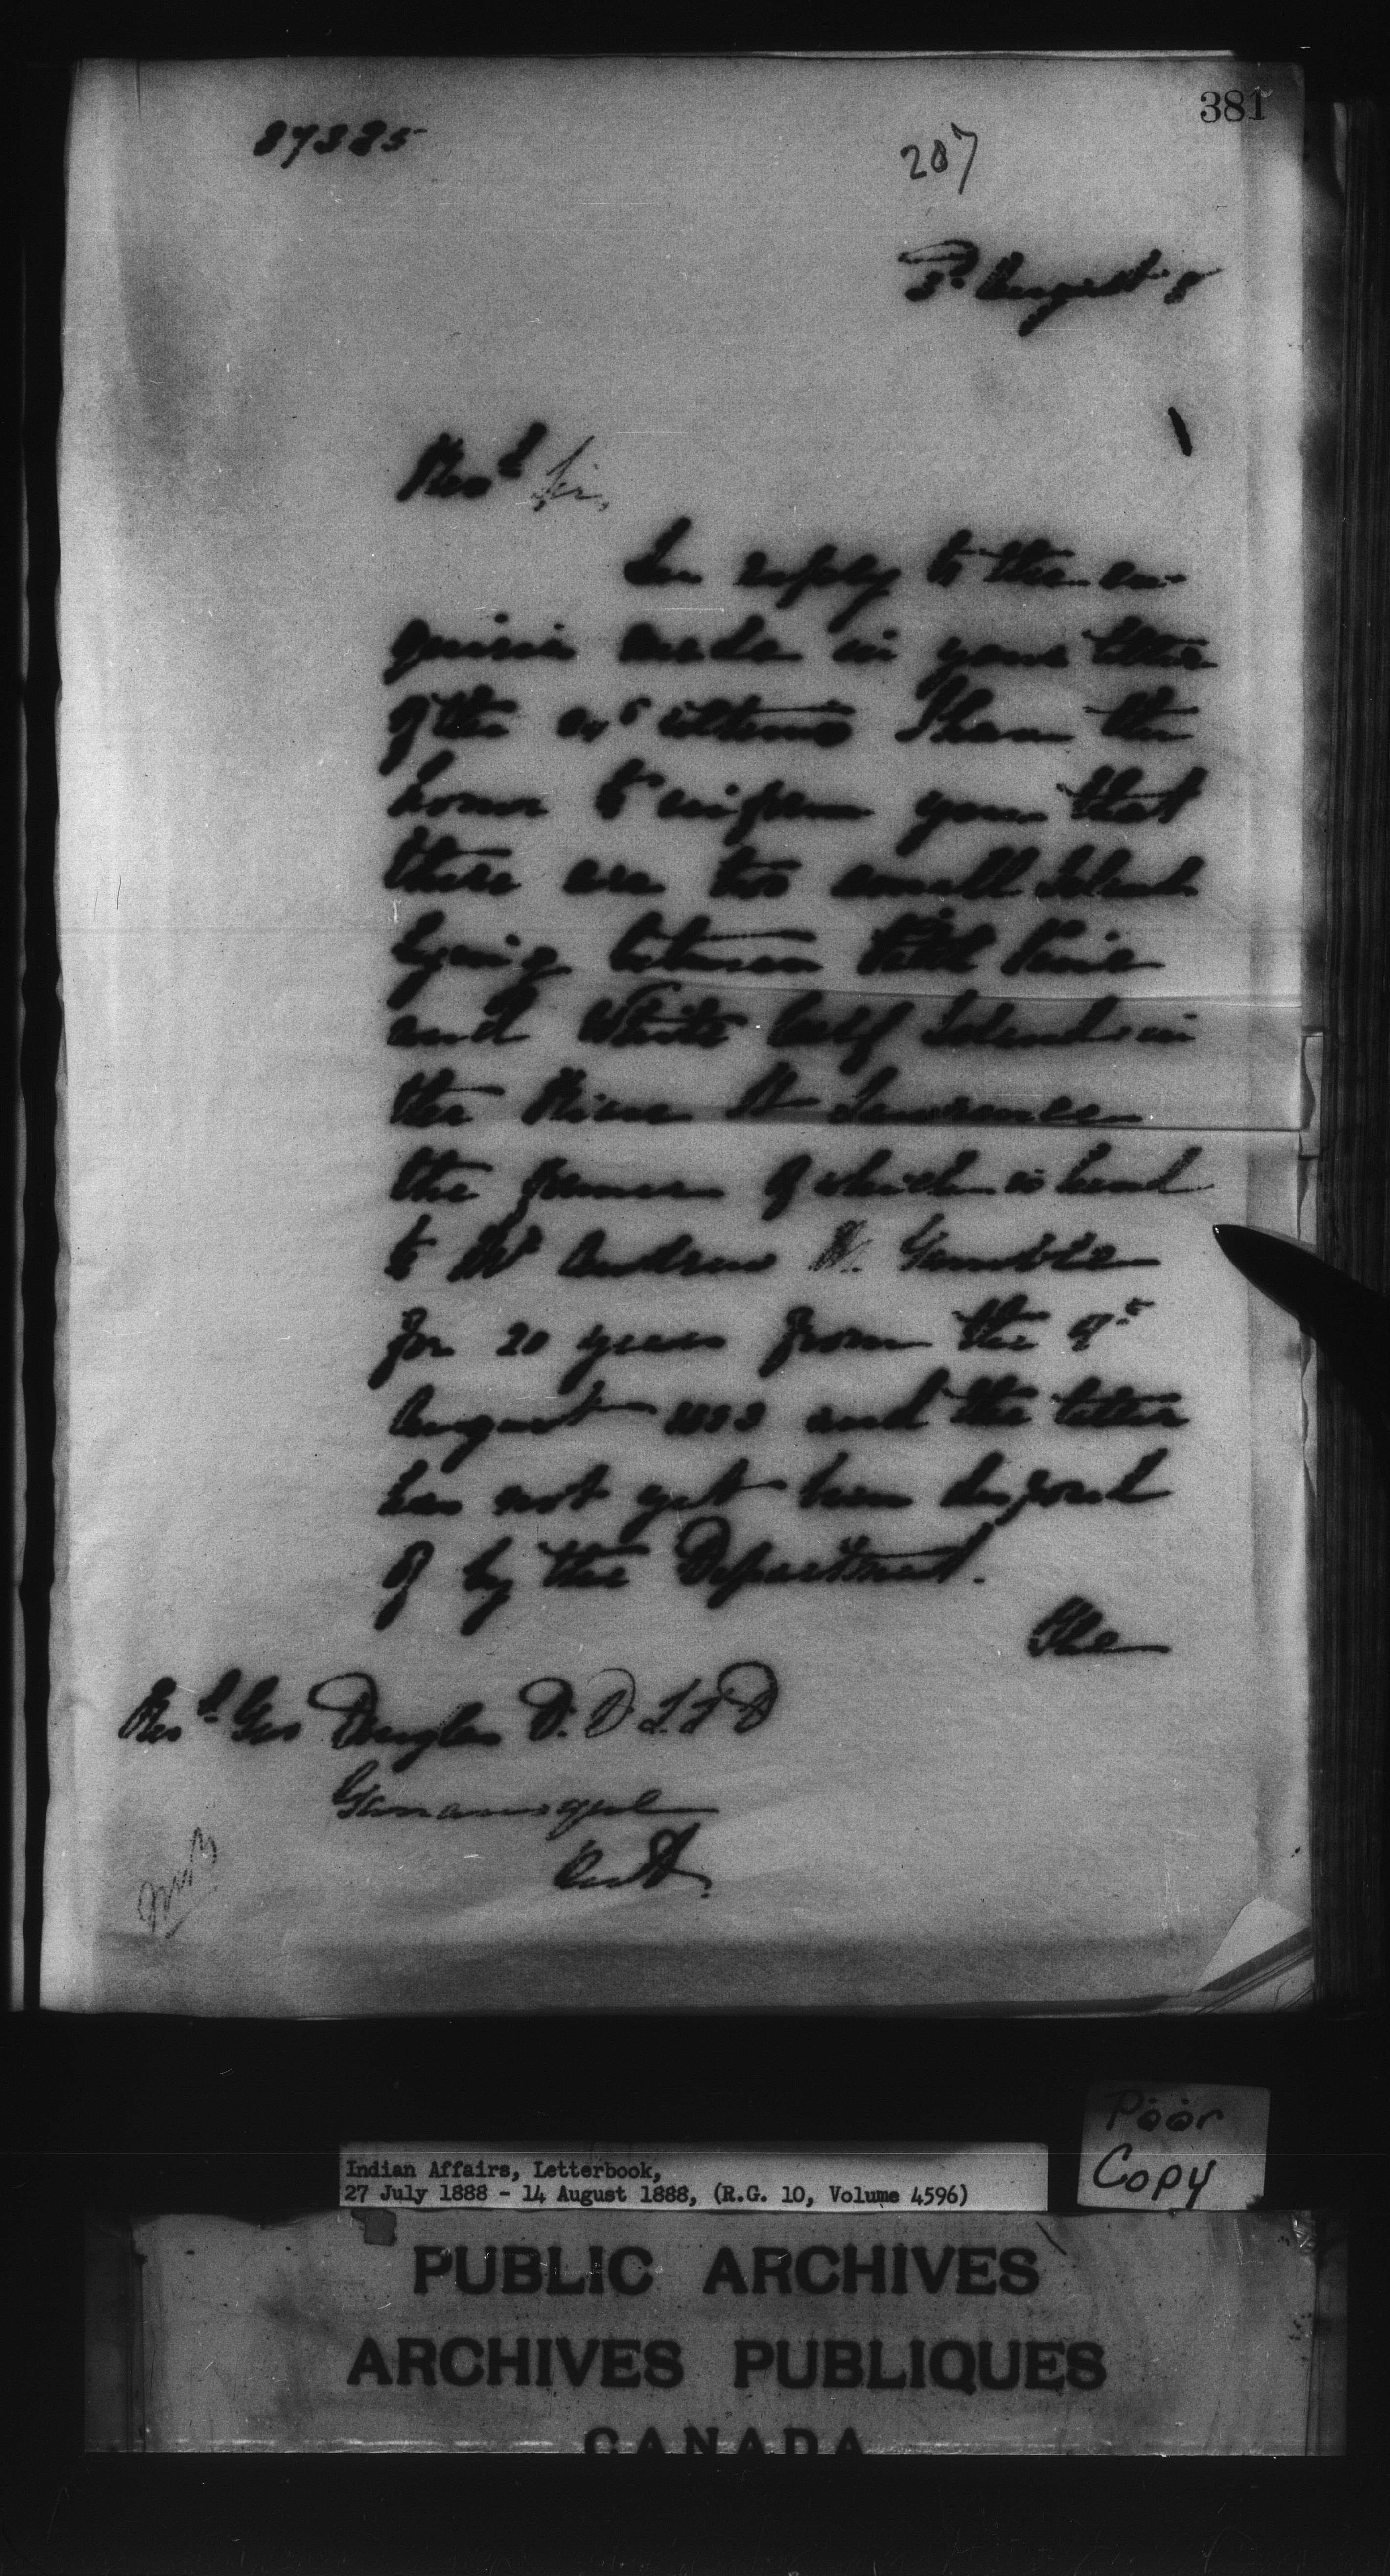 381
87385
207
August 8
Revd Sir,
In reply to the en-
quiries made in your letter
of the ultimo I have the
honor to inform you that
there are two small Islands
lying between Petite Pine
and White Calf Islands in
the River St Lawrence
the former of which is leased
to Mr Andrew H. Gamble
for 20 years from the 9th
August and the latter
has not yet been disposed
of by the Department.
The
Revd Geo Douglas D. D L. L D
Gananoque
Ont.
Poor
Copy
Indian Affairs, Letterbook,
27 July 1888 - 14 August 1888, (R.G. 10, Volume 4596)
PUBLIC ARCHIVES
ARCHIVES PUBLIQUES
CANADA